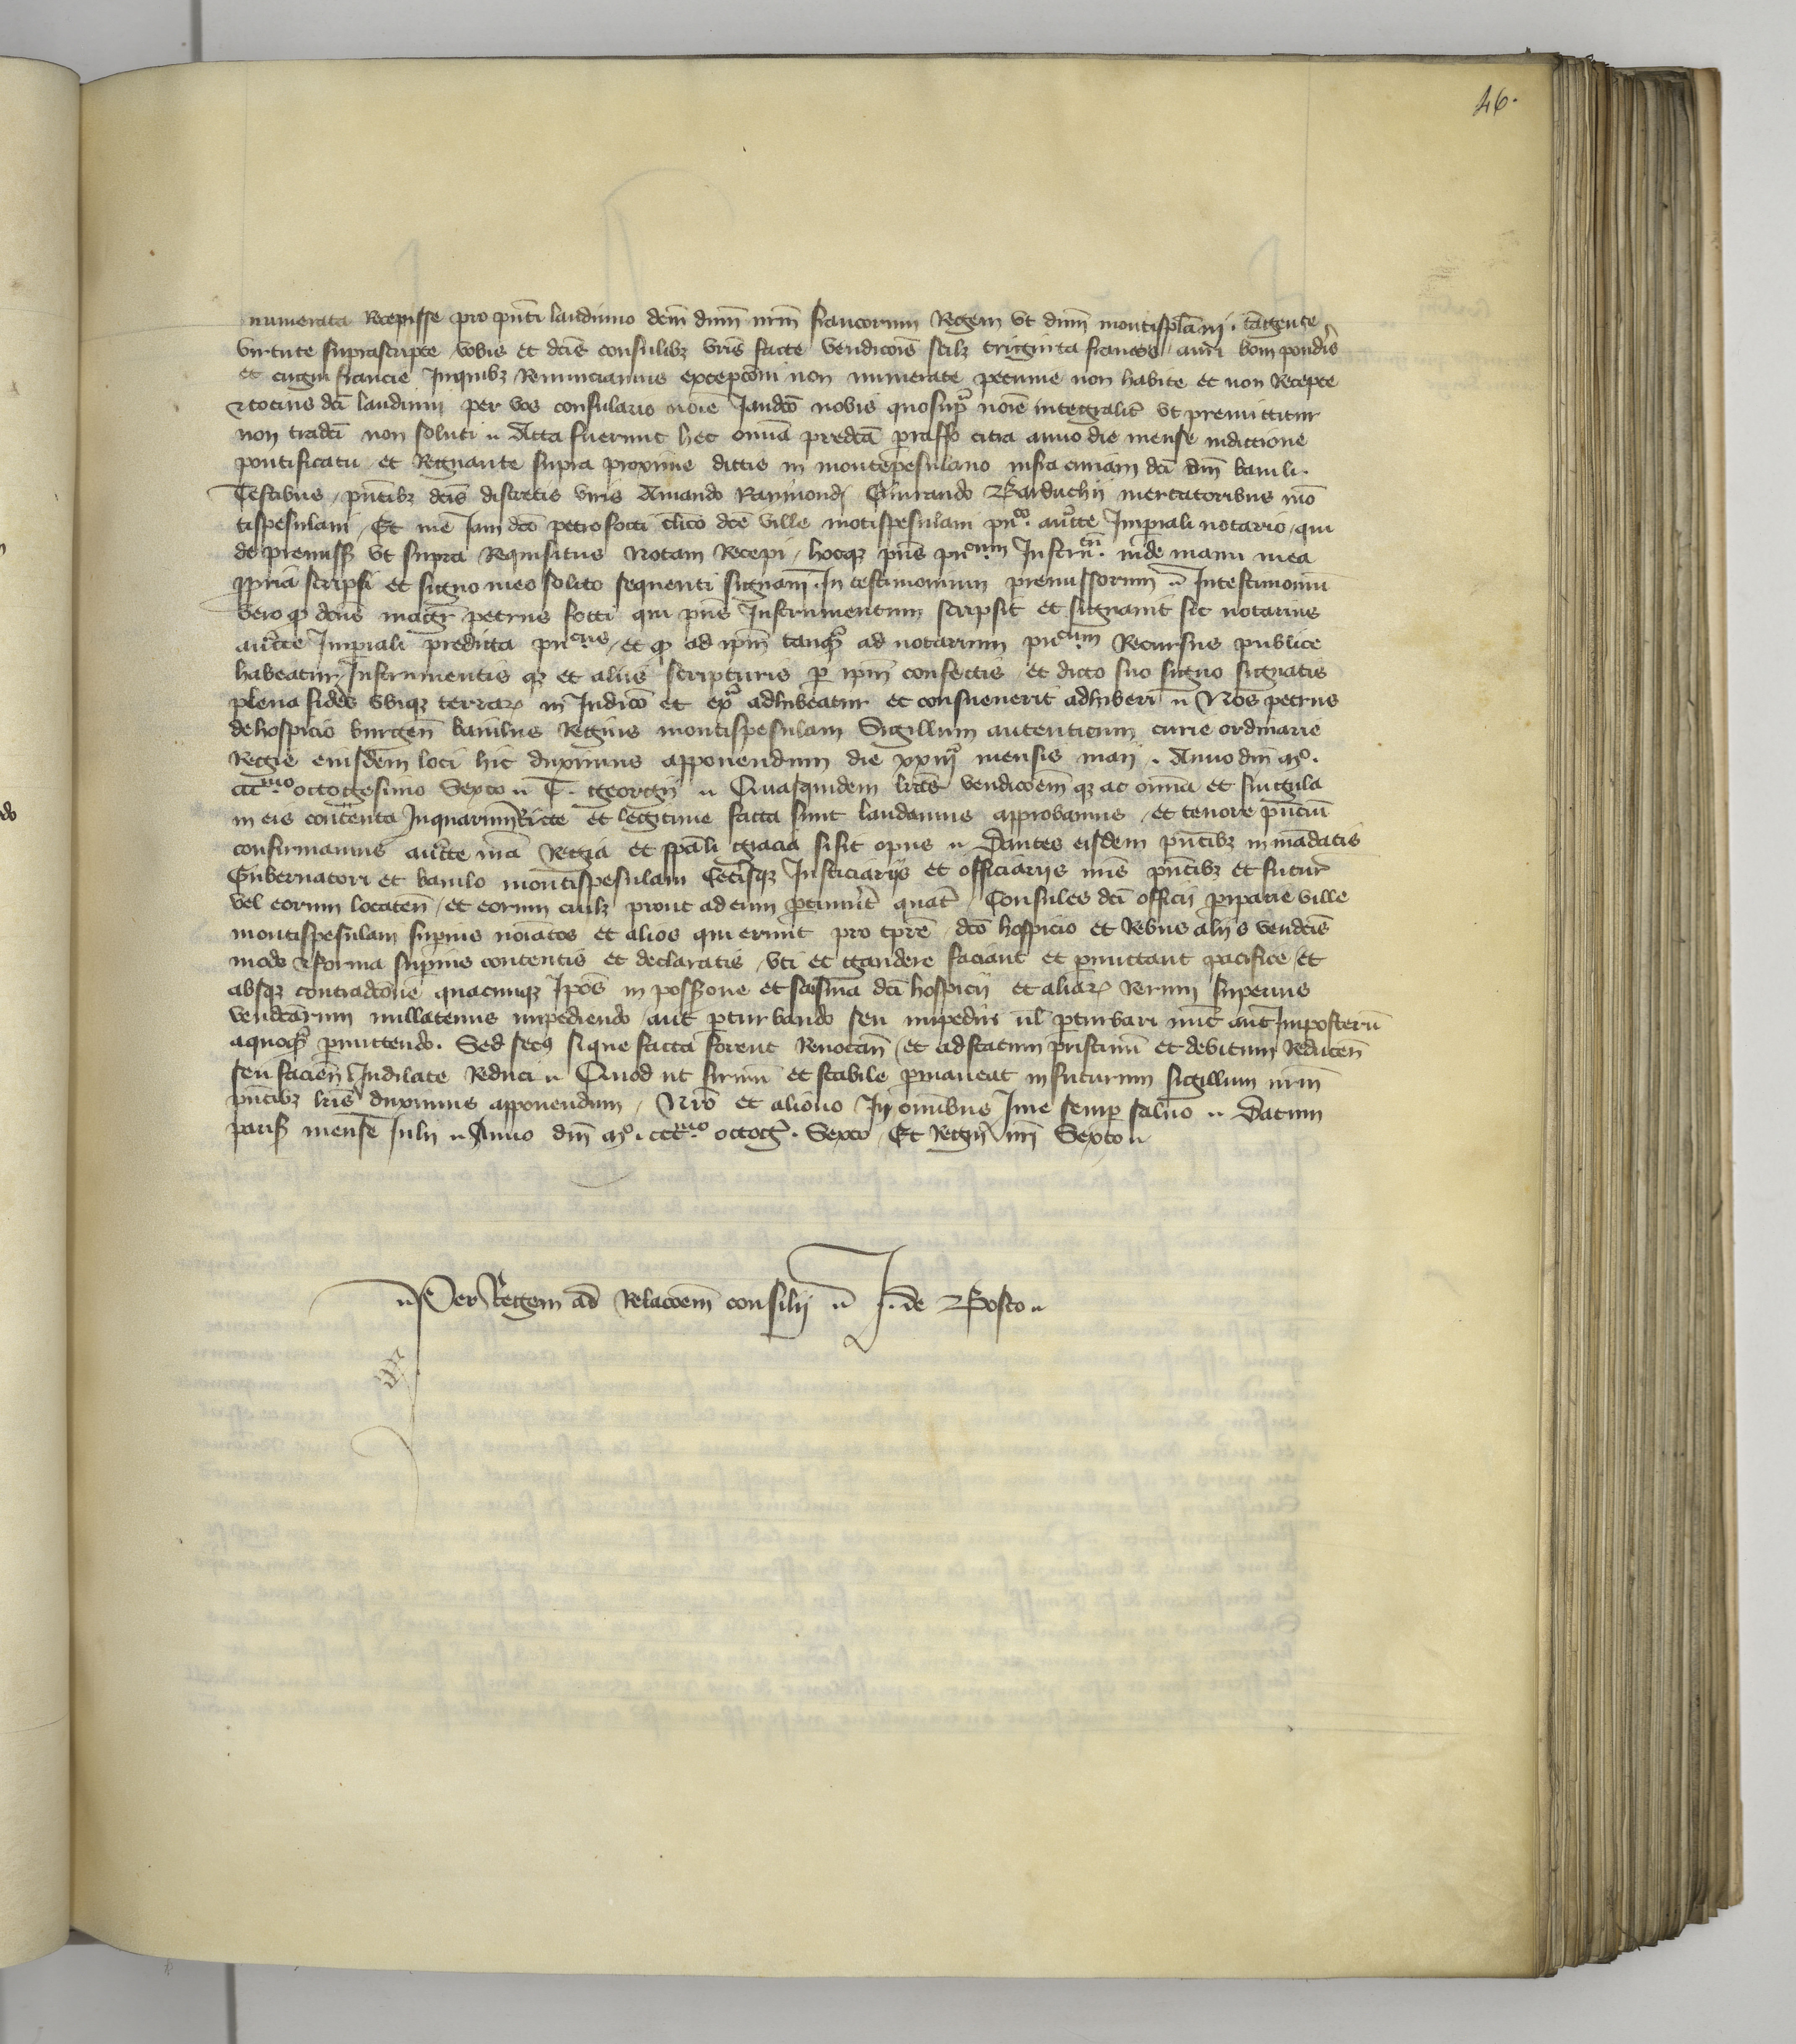 46.
numerata Recepisse pro pnti laudimio dcm dnm nrm francorum Regem ut dnm montispllani. tangente
virtute suprascripte vobis et dcis consulibz vris facte vendicois scilz triginta francos auri boni ponderis
et cugni francie Inquibz Renunciamus excepconi non numerate pecunie non habite et non Recepte
& tocius dci laudimii per vos consulario noie Jamdco nobis quosupra noie integralit ut premittitur
non tradci non soluti Acta fuerunt hec omnia predca prasso citra anno die mense indictione
pontificatu et Regnante supra proxime dictis in montepesulano infra curiam dci dni baiuli.
Testibus pntibz dcis discretis viris Amando Raymondi Guirando Barduchii mercatoribus mo
tispesulani Et me Jam dco petro focti clico dce ville motispesulani puco. aucte Imperiali notario qui
de premiss ut supra Requisitus Notam Recepi hocqz pns pucum Instrum. inde manu mea
ppria scripsi et signo meo solito sequenti signavi. In testimonium premissorum Intestimoniu
vero q dcus magr petrus focti qui pns Instrumentum scripsit et signavit sit notarius
aucte Imperiali predicta pucus et q ad ipm tanqz ad notarium pucum Recursus publice
habeatur Instrumentis qz et aliis scripturis p ipm confectis et dicto suo signo signatis
plena fides ubiqz terrarz in Judico et exa adhibeatur et consueverit adhiberi Nos petrus
dehospicio burgen baiulus Regius montispesulani Sigillum autenticum curie ordinarie
Regie eiusdem loci hic duximus apponendum die xxiiia mensis maii. Anno dni mo.
ccc mo. octogesimo Sexto G. georgii Quasquidem lras vendicoem qz ac omia et singula
in eis contenta Inquantum Rite et legitime facta sunt laudamus approbamus et tenore pncium
confirmamus aucte nra Regia et spali gracia si sit opus Dantes eisdem pntibz in mandatis
Gubernatori et baiulo montispesulani Cetisqz Justiciariis et officiariis nris pntibz et futur
vel eorum locaten et eorum cuilz prout ad eum ptinuit quat Consules dci officii piparie ville
montispesulani supius noiatos et alios qui erunt pro tpre dco hospicio et Rebus aliis vendcis
modo & forma supius contentis et declaratis uti et gaudere faciant et pmittant pacifice et
absqz contradcone quacunqz Ipos in possione et saisina dci hospicii et aliarz rerum superius
vendcarum nullatenus impediendo aut pturbando seu impediri ul pturbari nuc aut Imposteru
aquoqz pmittendo. Sed secus si que facta forent Revocan et ad statum pristinu et debitum Reducen
seu facien Indilate Reduci Quod ut firmu et stabile pmaneat in futurum sigillum nrm
pntibz lris duximus apponendum Nro et alieno In omibus Jure semp salvo Datum
parisz mense Julii Anno dni mo. ccc mo. octog. Sexto Et Regni nri Sexto
Per Regem ad Relacoem consilii J. de Bosco